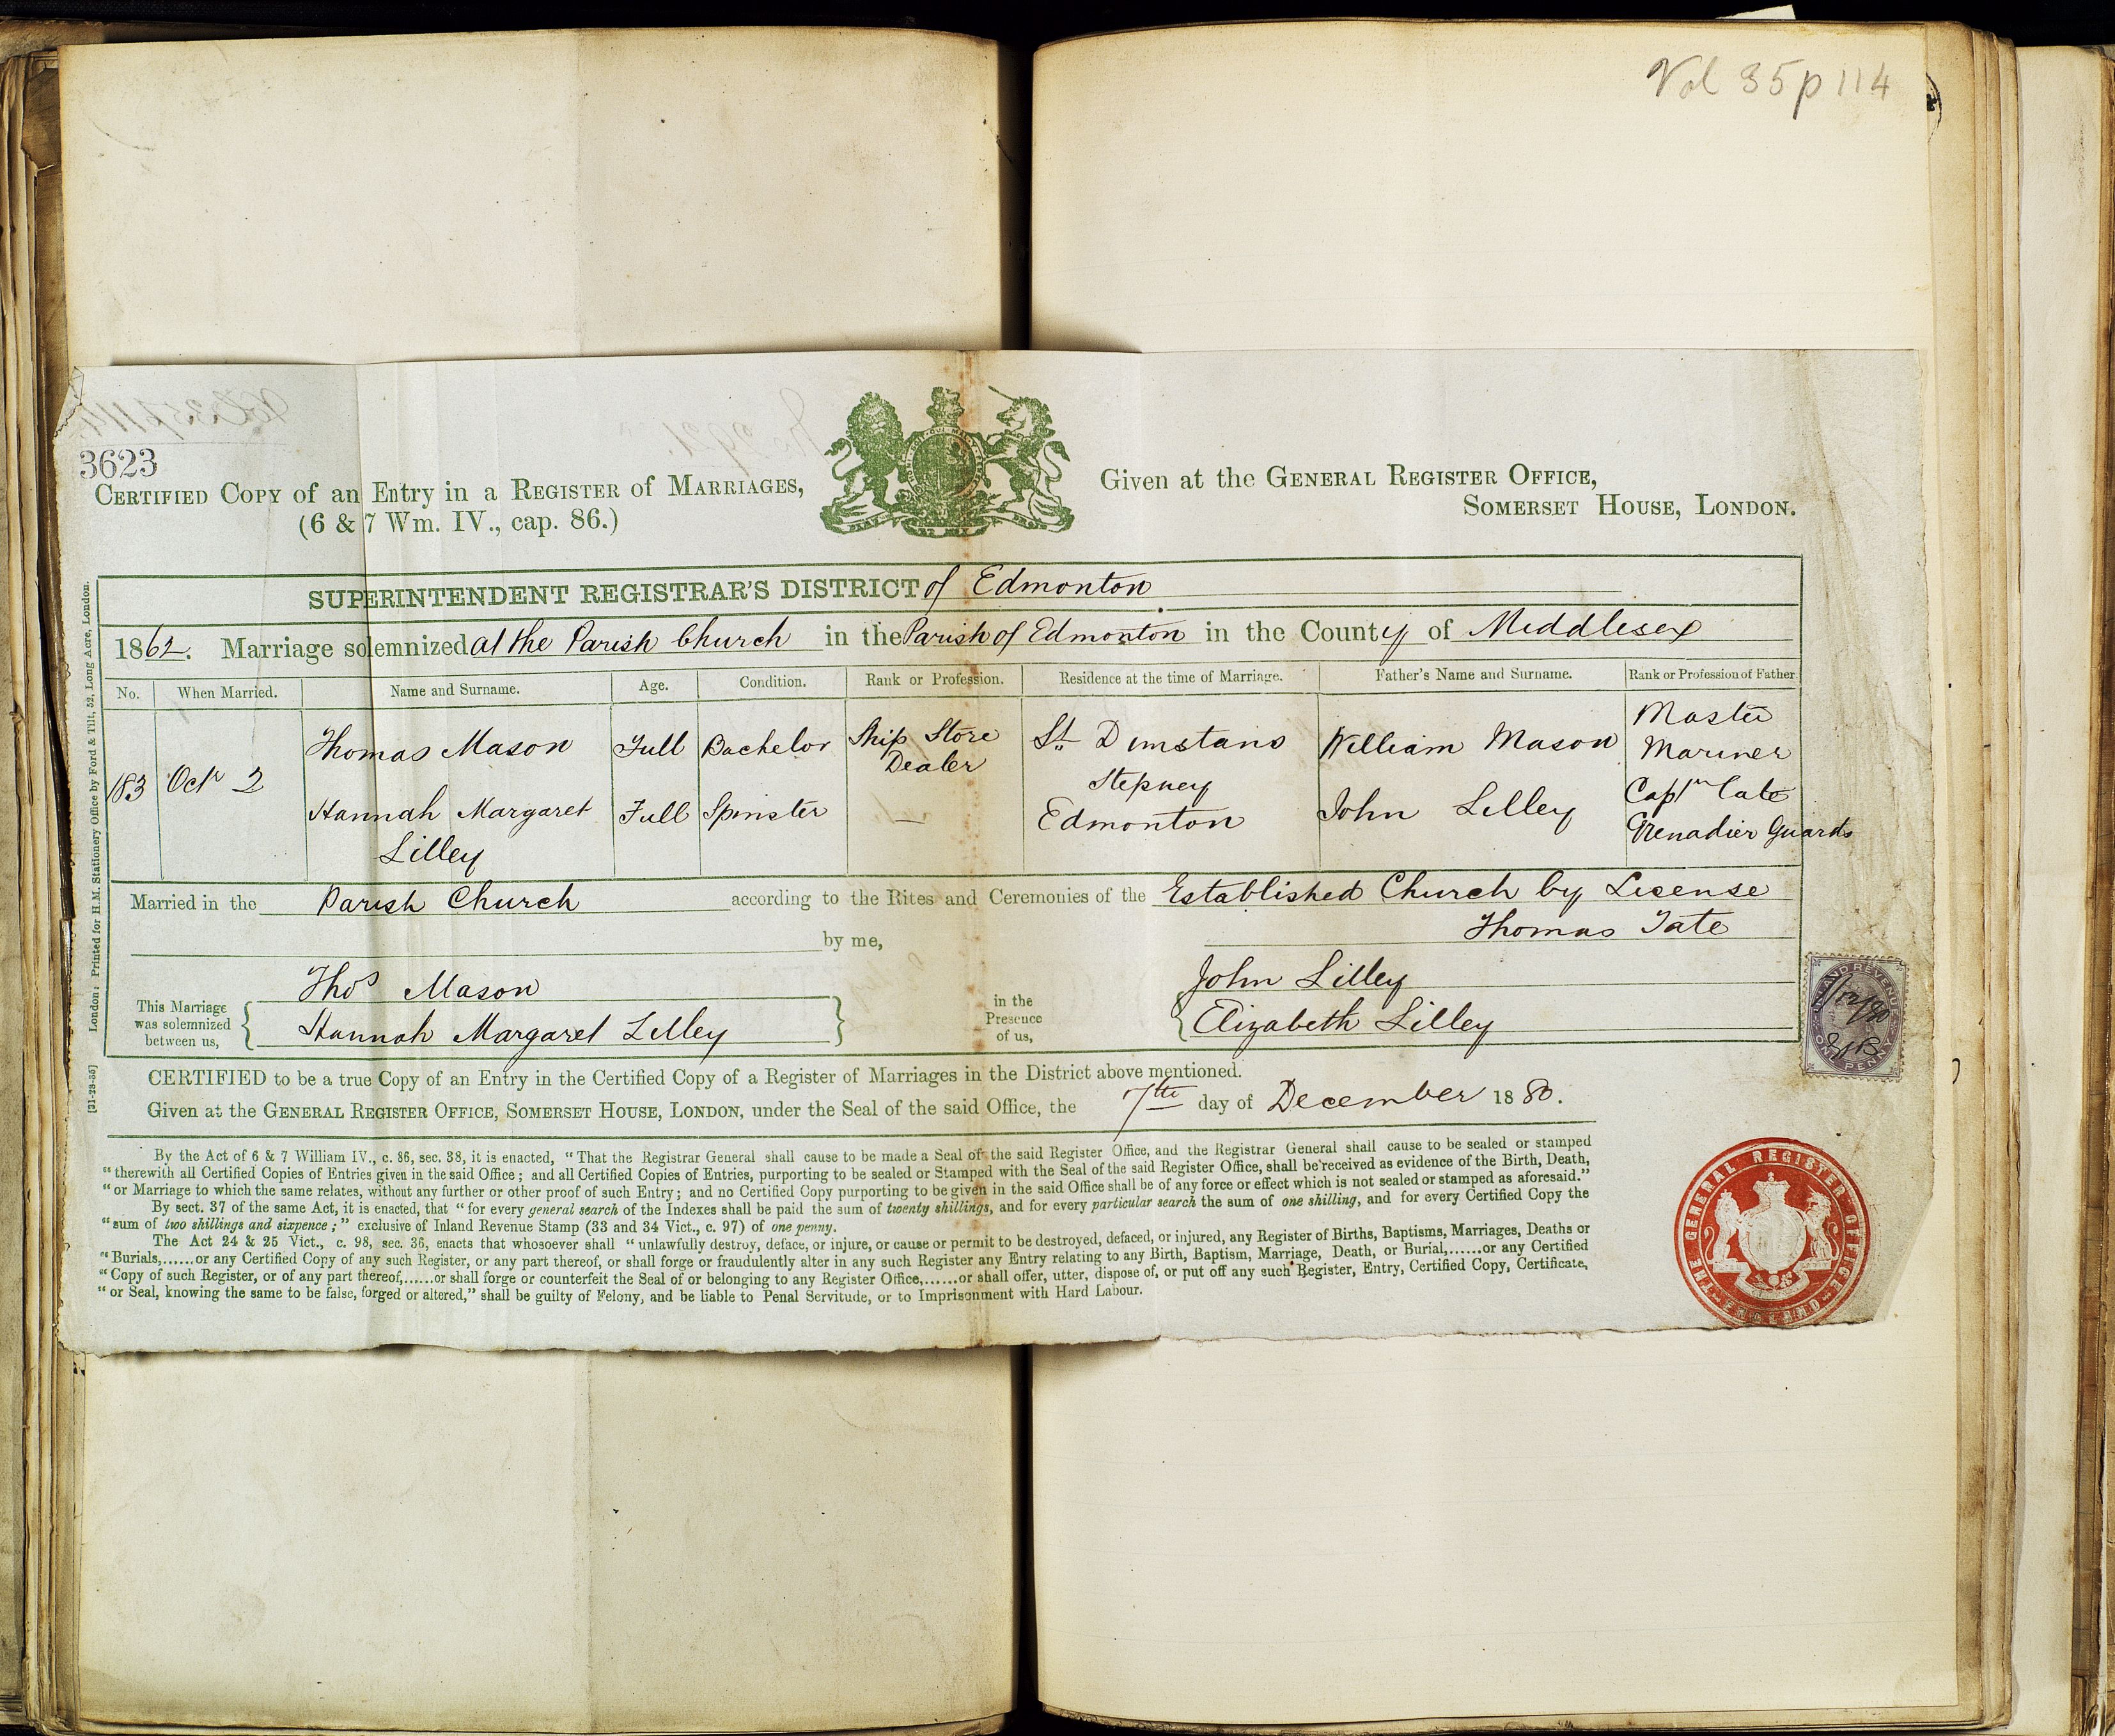 Vol 35 p 114
3623
CERTIFIED COPY of an Entry in a REGISTER of MARRIAGES,
(6 & 7 Wm. IV., cap. 86.)
Given at the GENERAL REGISTER OFFICE,
SOMERSET HOUSE, LONDON.
SUPERINTENDENT REGISTRAR'S DISTRICT of Edmonton
1862. Marriage solemnized at the Parish Church in the Parish of Edmonton in the County of Middlesex
No. When Married. Name and Surname. Age. Condition. Rank or Profession. Residence at the time of Marriage. Father's Name and Surname. Rank or Profession of Father.
183 Octr 2
Thomas Mason Full Bachelor Ship Store Dealer St Dunstans Stepney William Mason Master Mariner
Hannah Margaret Lilley Full Spinster — Edmonton John Lilley Captn late Grenadier Guards
Married in the Parish Church according to the Rites and Ceremonies of the Established Church by License
by me, Thomas Tate
This Marriage was solemnized between us,
Thos Mason
Hannah Margaret Lilley
in the Presence of us,
John Lilley
Elizabeth Lilley
CERTIFIED to be a true Copy of an Entry in the Certified Copy of a Register of Marriages in the District above mentioned.
Given at the GENERAL REGISTER OFFICE, SOMERSET HOUSE, LONDON, under the Seal of the said Office, the 7th day of December 1880.
By the Act of 6 & 7 William IV., c. 86, sec. 38, it is enacted, "That the Registrar General shall cause to be made a Seal of the said Register Office, and the Registrar General shall cause to be sealed or stamped
"therewith all Certified Copies of Entries given in the said Office; and all Certified Copies of Entries, purporting to be sealed or Stamped with the Seal of the said Register Office, shall be received as evidence of the Birth, Death,
"or Marriage to which the same relates, without any further or other proof of such Entry; and no Certified Copy purporting to be given in the said Office shall be of any force or effect which is not sealed or stamped as aforesaid."
By sect. 37 of the same Act, it is enacted, that "for every general search of the Indexes shall be paid the sum of twenty shillings, and for every particular search the sum of one shilling, and for every Certified Copy the
"sum of two shillings and sixpence;" exclusive of Inland Revenue Stamp (33 and 34 Vict., c. 97) of one penny.
The Act 24 & 25 Vict., c. 98, sec. 36, enacts that whosoever shall "unlawfully destroy, deface, or injure, or cause or permit to be destroyed, defaced, or injured, any Register of Births, Baptisms, Marriages, Deaths or
"Burials,......or any Certified Copy of any such Register, or any part thereof, or shall forge or fraudulently alter in any such Register any Entry relating to any Birth, Baptism, Marriage, Death, or Burial,......or any Certified
"Copy of such Register, or of any part thereof,......or shall forge or counterfeit the Seal of or belonging to any Register Office,......or shall offer, utter, dispose of, or put off any such Register, Entry, Certified Copy, Certificate,
"or Seal, knowing the same to be false, forged or altered," shall be guilty of Felony, and be liable to Penal Servitude, or to Imprisonment with Hard Labour.
London: Printed for H.M. Stationery Office by Ford & Tilt, 52, Long Acre, London.
INLAND REVENUE
ONE PENNY
THE GENERAL REGISTER OFFICE
ENGLAND